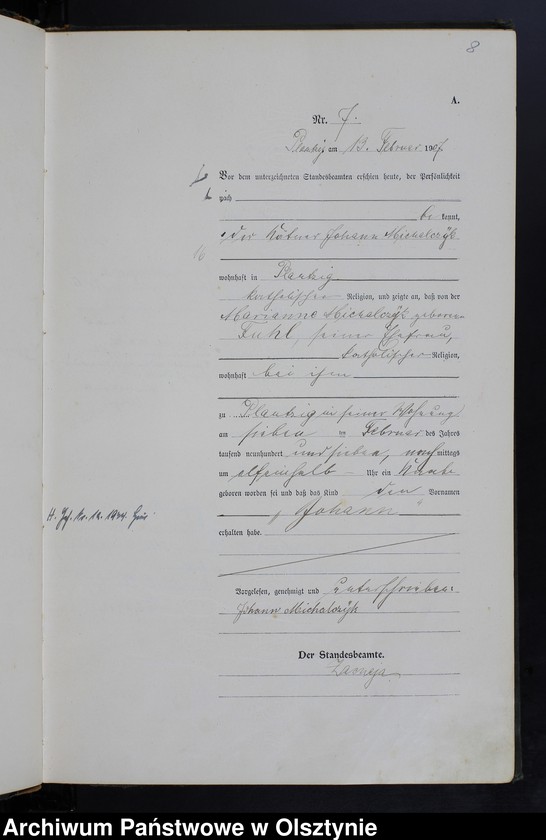 8
A.
Nr. 7.
Plautzig am 13. Februar 1907.
Vor dem unterzeichneten Standesbeamten erschien heute, der Persönlichkeit
nach
be kannt,
der Kätner Johann Michalczyk
wohnhaft in Plautzig
katholischer Religion, und zeigte an, daß von der
Marianne Michalczyk geborene
Fuhl, seiner Ehefrau,
katholischer Religion,
wohnhaft bei ihm
zu Plautzig in seiner Wohnung
am sieben en Februar des Jahres
tausend neunhundert und sieben, nachmittags
um elfeinhalb Uhr ein Knabe
geboren worden sei und daß das Kind den Vornamen
"Johann"
erhalten habe.
H. Nr. 12. 1934.
Vorgelesen, genehmigt und unterschrieben:
Johann Michalczyk
Der Standesbeamte.
Archiwum Państwowe w Olsztynie